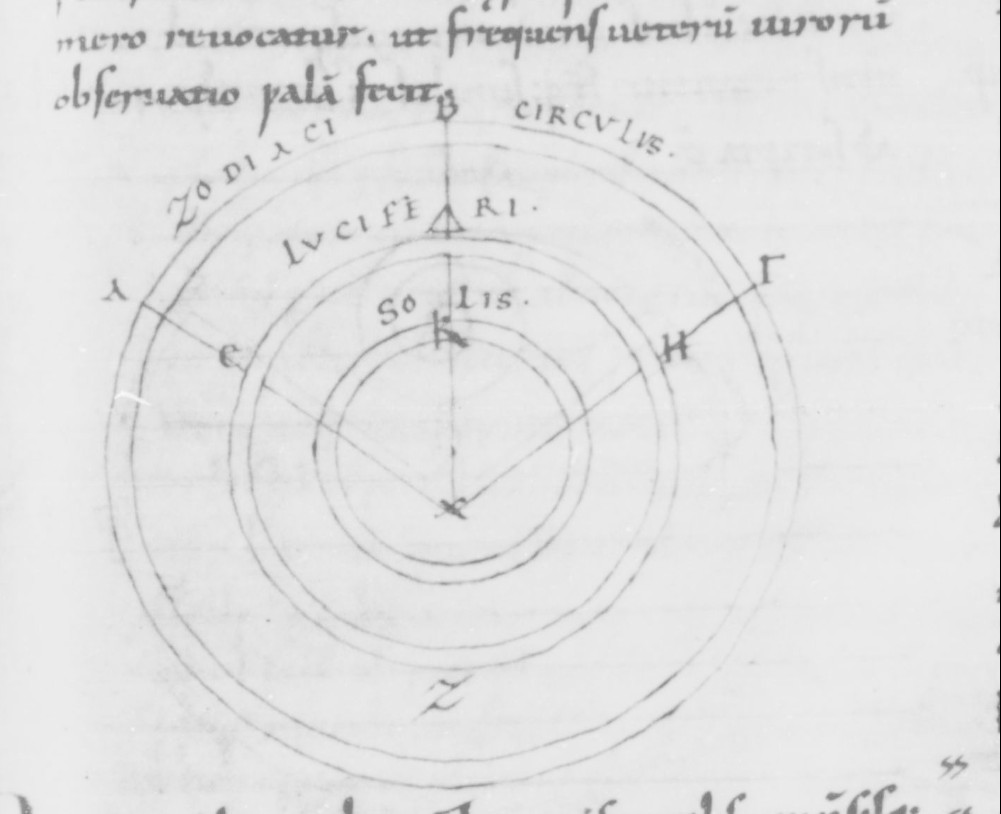 mero reuocatur. ut frequens ueterū uirorū
obseruatio palā fecit.
B
ZODIACI CIRCVLUS.
LVCIFE Δ RI.
A Γ
SO LIS.
K
E H
X
Z